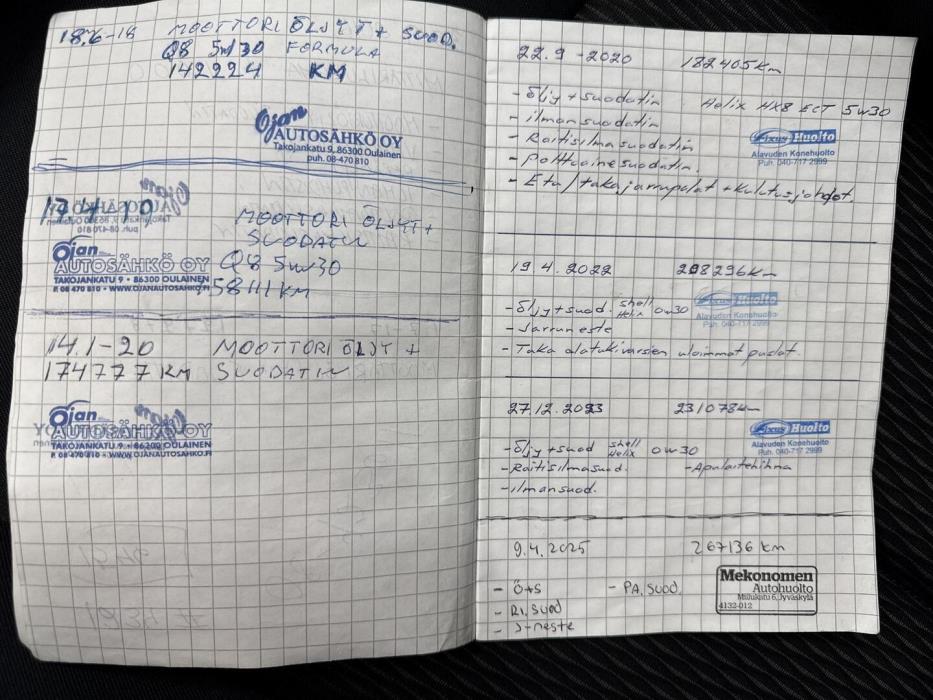 18.6-18 MOOTTORI ÖLJYT + SUOD.
Q8 5w30 FORMULA
142224 KM
Ojan
AUTOSÄHKÖ OY
Takojankatu 9, 86300 Oulainen
puh. 08-470 810
MOOTTORI ÖLJYT +
SUODATIN
Q8 5w30
58111 KM
Ojan
AUTOSÄHKÖ OY
TAKOJANKATU 9 • 86300 OULAINEN
P. 08 470 810 • WWW.OJANAUTOSAHKO.FI
14.1-20 MOOTTORI ÖLJYT +
174777 KM SUODATIN
Ojan
AUTOSÄHKÖ OY
TAKOJANKATU 9 • 86300 OULAINEN
P. 08 470 810 • WWW.OJANAUTOSAHKO.FI
22.9 -2020 182405km
- Öljy + suodatin Helix HX8 ECT 5w30
- ilmansuodatin
- Raitisilmasuodatin
- Polttoainesuodatin.
- Etu/takajarrupalat + kulutusjohdot.
Huolto
Alavuden Konehuolto
Puh. 040-717 2999
19.4.2022 208296km
- Öljy + suod. shell Helix 0w30
- Jarruneste
- Taka alatukivarsien uloimmat puslat.
Huolto
Alavuden Konehuolto
Puh. 040-717 2999
27.12.2023 231078km
- Öljy + suod shell Helix 0w30
- Raitisilmasuod. - Apulaitehihna
- ilmansuod.
Huolto
Alavuden Konehuolto
Puh. 040-717 2999
9.4.2025 267136 km
- Ö+S - PA. SUOD.
- RI. SUOD
- J-neste
Mekonomen
Autohuolto
Millukatu 6, Jyväskylä
4132-012